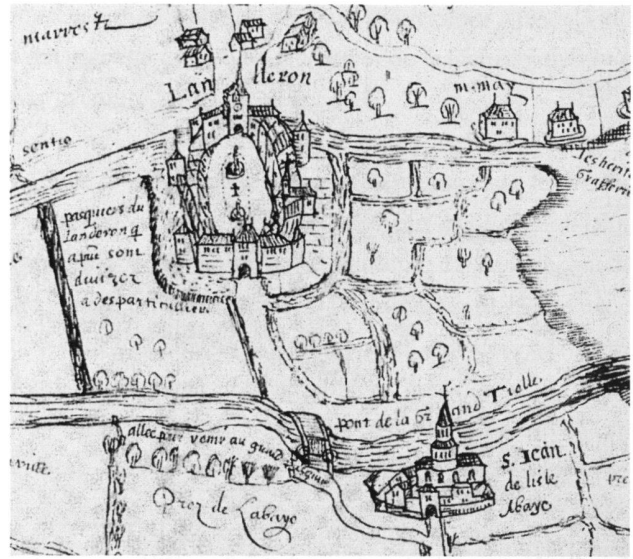 marrest
Landeron
m. may
sentio
les herit
Grafferri
pasquiers du
Landeron q̃
a p̃nt sont
diuizez
a des particuliers
pont de la Grand Tiolle.
allee pour venir au
S. Jean
de lisle
Abaye
pre
Prez de Labaye